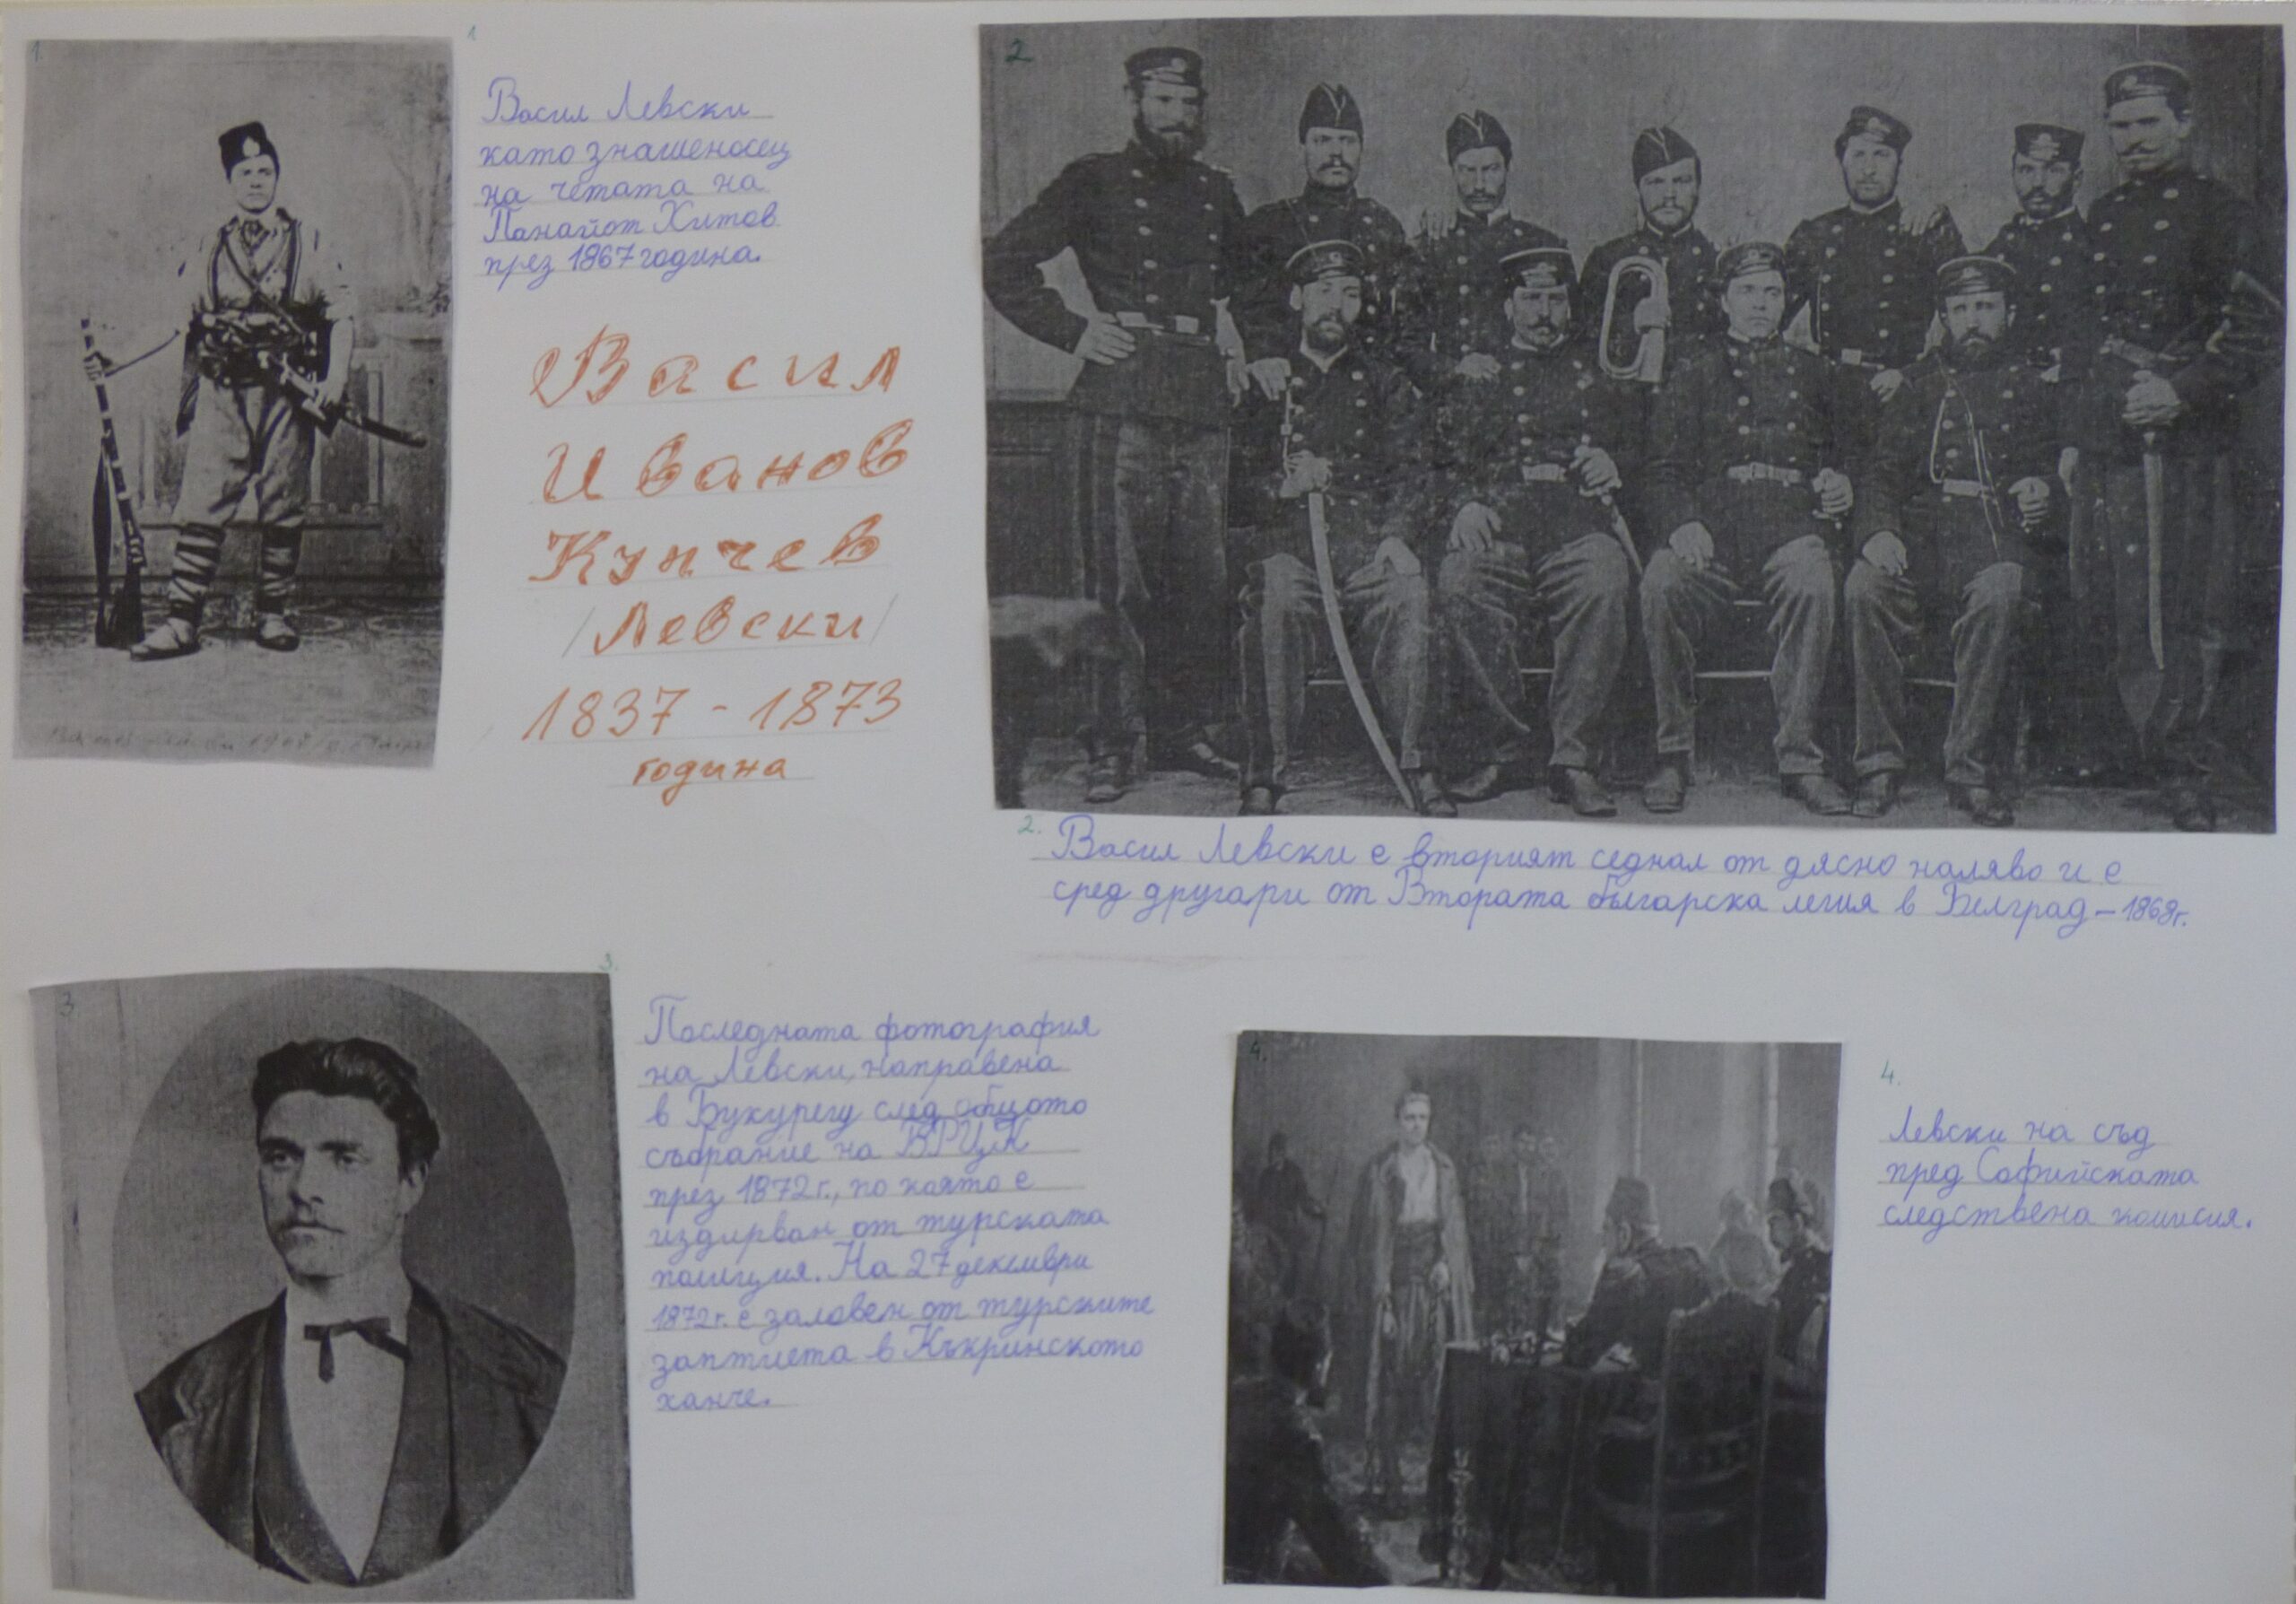 1.
1
Васил Левски
като знаменосец
на четата на
Панайот Хитов
през 1867 година.
Васил
Иванов
Кунчев
/Левски/
1837 - 1873
година
2
2.
Васил Левски е вторият седнал от дясно наляво и е
сред другари от Втората българска легия в Белград – 1868г.
3
3.
Последната фотография
на Левски, направена
в Букурещ след общото
събрание на БРЦК
през 1872 г., по която е
издирван от турската
полиция. На 27 декември
1872г. е заловен от турските
заптиета в Къкринското
ханче.
4.
4.
Левски на съд
пред Софийската
следствена комисия.